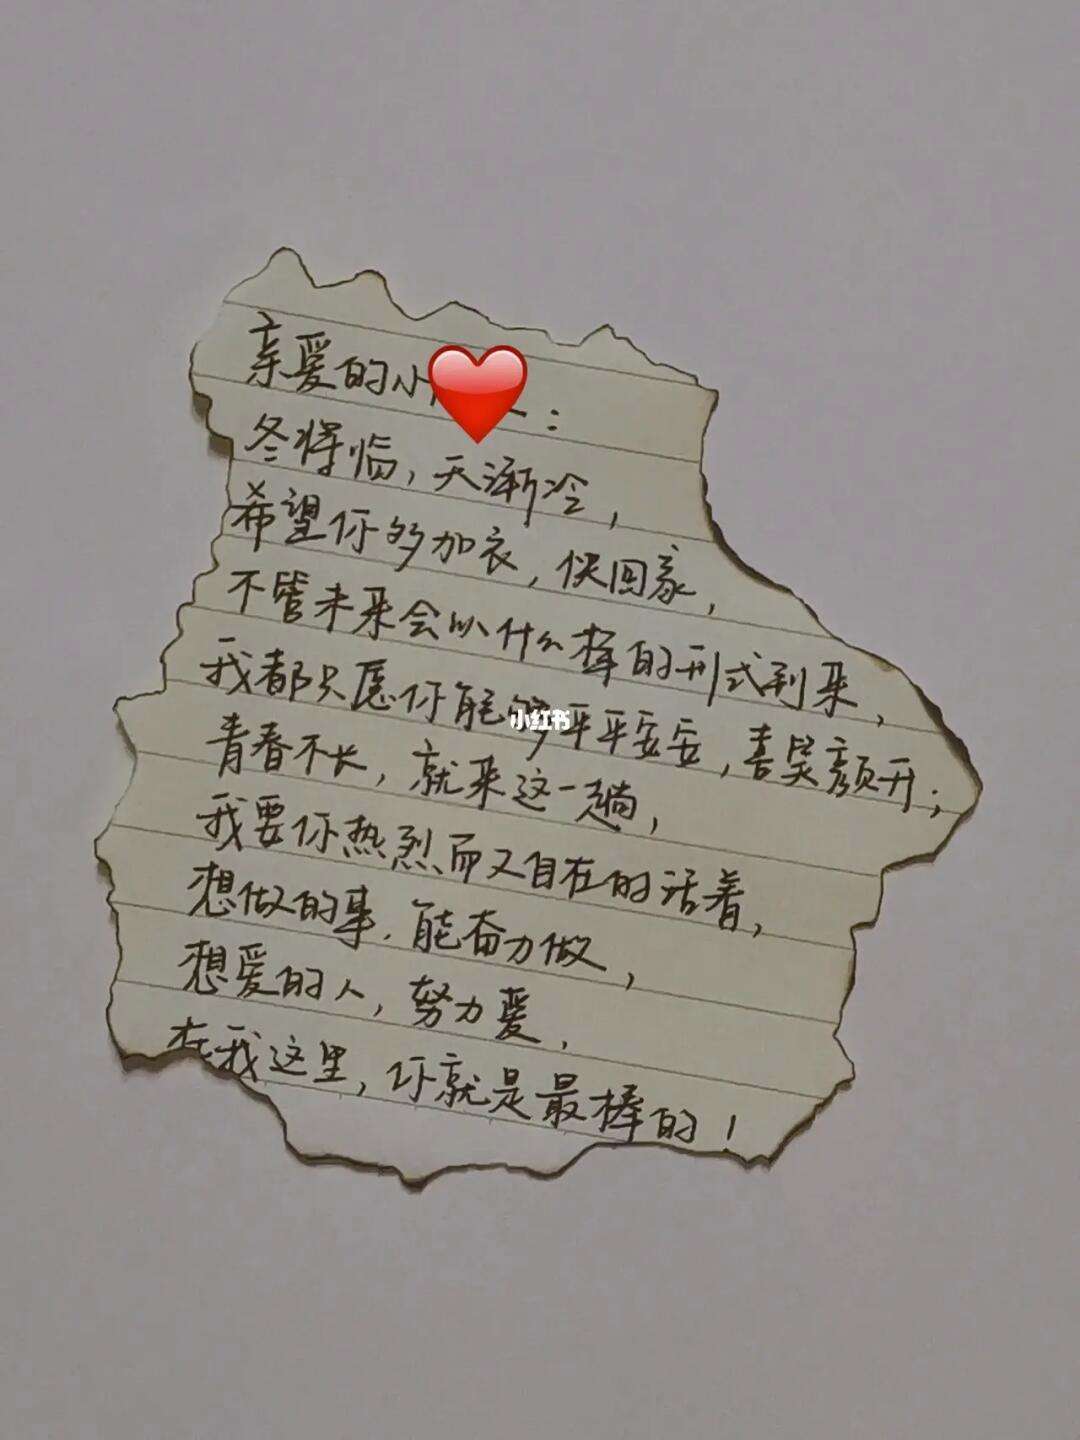 亲爱的小
冬将临，天渐冷，
希望你多加衣，快回家，
不管未来会以什么样的形式到来，
我都只愿你能够平平安安，喜笑颜开；
小红书
青春不长，就来这一趟，
我要你热烈而又自在的活着，
想做的事，能奋力做，
想爱的人，努力爱，
在我这里，你就是最棒的！